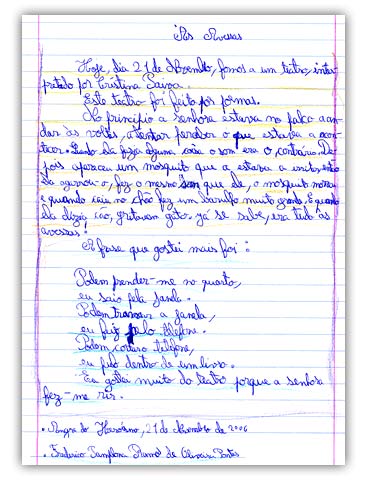 Às Avessas
Hoje, dia 21 de Novembro, fomos a um teatro, inter-
pretado por Cristina Paiva.
Este teatro foi feito por poemas.
No princípio a senhora estava no palco a an-
dar às voltas, a tentar perceber o que estava a acon-
tecer. Quando ela fazia alguma coisa o som era o contrário. De-
pois apareceu um mosquito que a estava a irritar, então
ela agarrou-o, fez o mesmo som que ele, o mosquito morreu
e quando caiu no chão fez um barulho muito grande. E quando
ela dizia cão, gritavam gato. Já se sabe, era tudo às
avessas!
A frase que gostei mais foi:
Podem prender-me no quarto,
eu saio pela janela.
Podem trancar a janela,
eu fujo pelo telefone.
Podem cortar o telefone,
eu fujo dentro de um livro.
Eu gostei muito do teatro porque a senhora
fez-me rir.
• Angra do Heroísmo, 21 de Novembro de 2006
• Frederico Pamplona Ramos de Oliveira Pontes